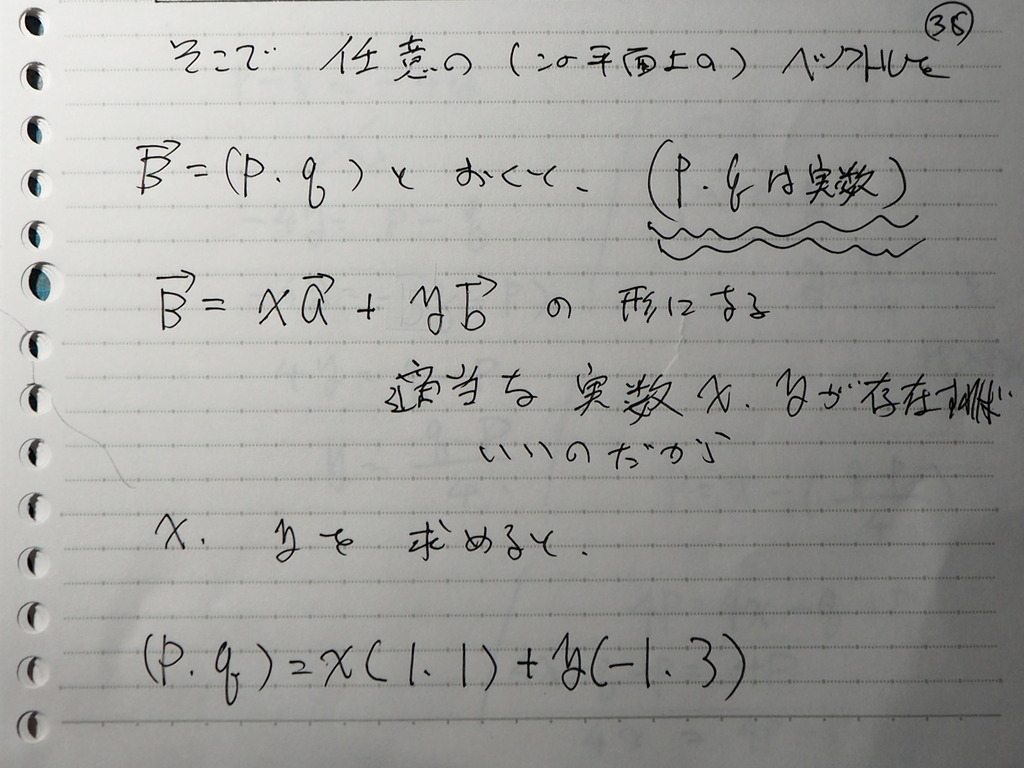 ㊳
そこで 任意の (この平面上の) ベクトルを
B⃗ = (p. q) と おくと、 (p. q は実数)
B⃗ = xa⃗ + yb⃗ の 形になる
適当な 実数 x. yが存在すれば
いいのだから
x. yを 求めると、
(p. q) = x(1. 1) + y(-1. 3)